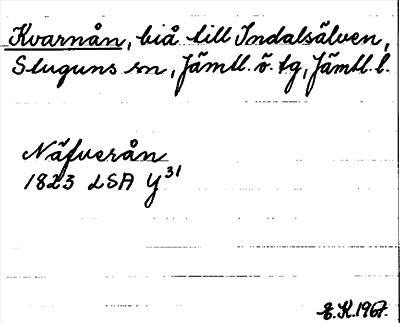 Kvarnån, biå till Indalsälven,
Stuguns sn, Jämtl. ö. tg, Jämtl. l.
Näfverån
1823 LSA Y³¹
E.K. 1967.